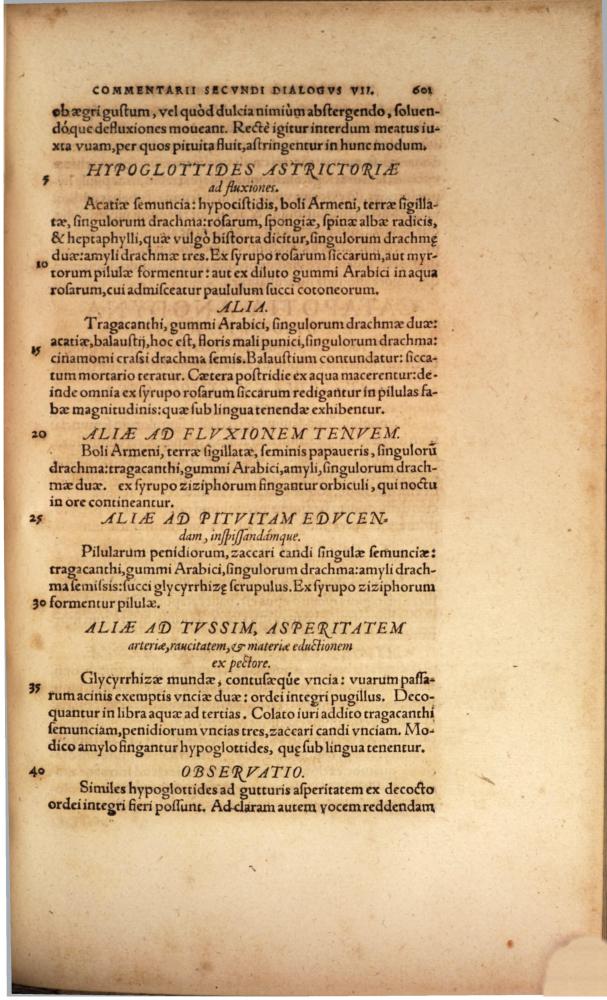 COMMENTARII SECVNDI DIALOGVS VII. 601
ob ægri gustum, vel quòd dulcia nimiùm abstergendo, soluen-
dóque defluxiones moueant. Rectè igitur interdum meatus iu-
xta vuam, per quos pituita fluit, astringentur in hunc modum.
HYPOGLOTTIDES ASTRICTORIÆ
5
ad fluxiones.
Acatiæ semuncia: hypocistidis, boli Armeni, terræ sigilla-
tæ, singulorum drachma: rosarum, spongiæ, spinæ albæ radicis,
& heptaphylli, quæ vulgò bistorta dicitur, singulorum drachmę
duæ: amyli drachmæ tres. Ex syrupo rosarum siccarum, aut myr-
10 torum pilulæ formentur: aut ex diluto gummi Arabici in aqua
rosarum, cui admisceatur paululum succi cotoneorum.
ALIA.
Tragacanthi, gummi Arabici, singulorum drachmæ duæ:
acatiæ, balaustij, hoc est, floris mali punici, singulorum drachma:
15 cinamomi crassi drachma semis. Balaustium contundatur: sicca-
tum mortario teratur. Cætera postridie ex aqua macerentur: de-
inde omnia ex syrupo rosarum siccarum redigantur in pilulas fa-
bæ magnitudinis: quæ sub lingua tenendæ exhibentur.
20 ALIÆ AD FLVXIONEM TENVEM.
Boli Armeni, terræ sigillatæ, seminis papaueris, singulorū
drachma: tragacanthi, gummi Arabici, amyli, singulorum drach-
mæ duæ. ex syrupo ziziphorum fingantur orbiculi, qui noctu
in ore contineantur.
25 ALIÆ AD PITVITAM EDVCEN-
dam, inspissandámque.
Pilularum penidiorum, zaccari candi singulæ semunciæ:
tragacanthi, gummi Arabici, singulorum drachma: amyli drach-
ma semissis: succi glycyrrhizę scrupulus. Ex syrupo ziziphorum
30 formentur pilulæ.
ALIÆ AD TVSSIM, ASPERITATEM
arteriæ, raucitatem, & materiæ eductionem
ex pectore.
Glycyrrhizæ mundæ, contusæqúe vncia: vuarum passa-
35 rum acinis exemptis vnciæ duæ: ordei integri pugillus. Deco-
quantur in libra aquæ ad tertias. Colato iuri addito tragacanthi
semunciam, penidiorum vncias tres, zaccari candi vnciam. Mo-
dico amylo fingantur hypoglottides, quę sub lingua tenentur.
40 OBSERVATIO.
Similes hypoglottides ad gutturis asperitatem ex decocto
ordei integri fieri possunt. Ad claram autem vocem reddendam